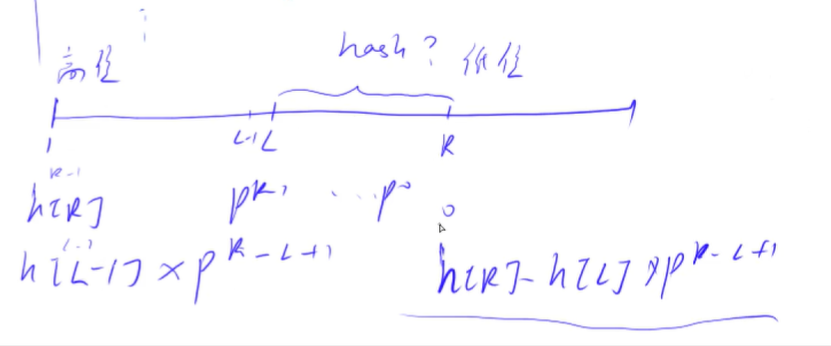 hash?
高位 低位
1 L-1 L R
R-1
h[R] p^{R-1} ... p^0 0
h[L-1] × p^{R-L+1}
h[R] - h[L] × p^{R-L+1}